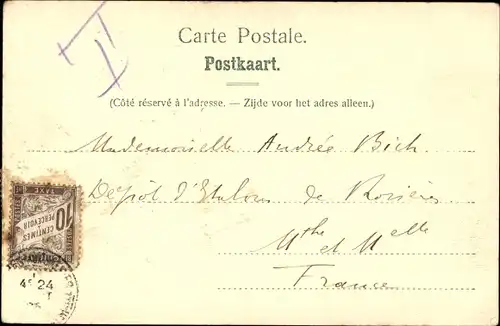 T
Carte Postale.
Postkaart.
(Côté réservé à l'adresse. — Zijde voor het adres alleen.)
Mademoiselle Andrée Bich
Dépôt d'Etalons de Rosières
Mthe et Mlle
France
10
CENTIMES
À PERCEVOIR
TAXE
24